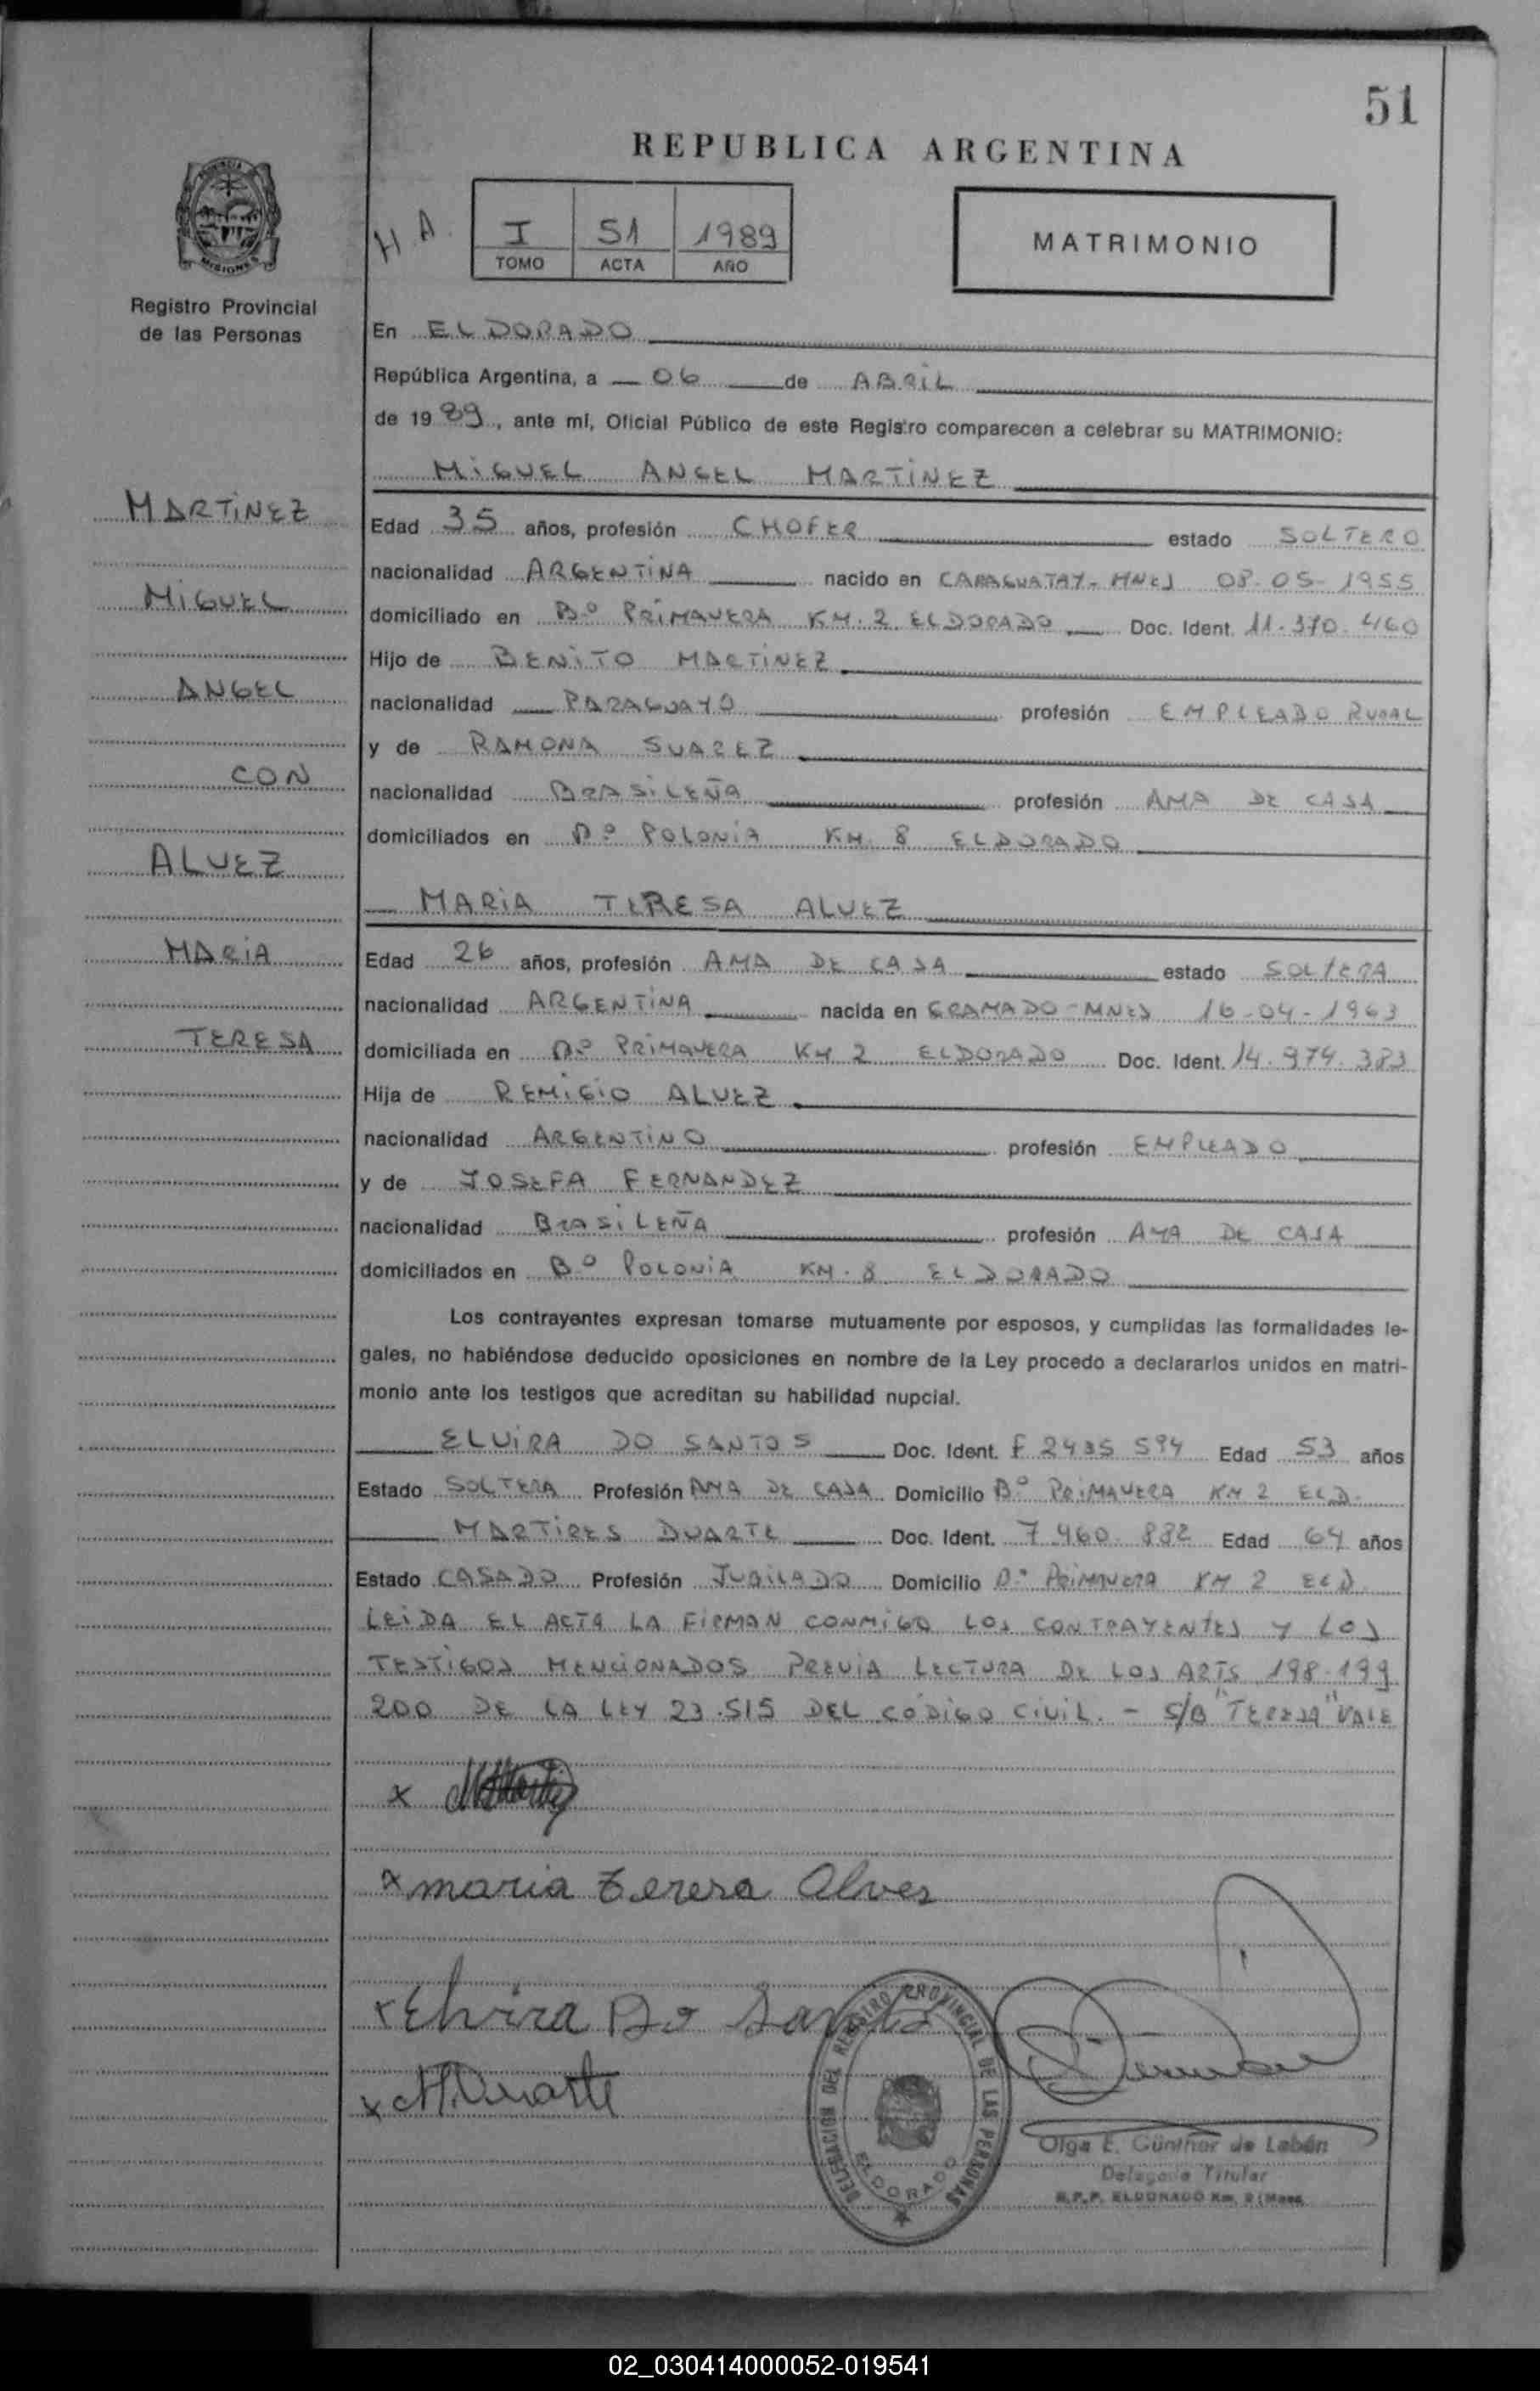 51
REPUBLICA ARGENTINA
H A.
I 51 1989
TOMO ACTA AÑO
MATRIMONIO
PROVINCIA
MISIONES
Registro Provincial
de las Personas
MARTINEZ
MIGUEL
ANGEL
CON
ALVEZ
MARIA
TERESA
En ELDORADO
República Argentina, a 06 de ABRIL
de 1989, ante mí, Oficial Público de este Registro comparecen a celebrar su MATRIMONIO:
MIGUEL ANGEL MARTINEZ
Edad 35 años, profesión CHOFER estado SOLTERO
nacionalidad ARGENTINA nacido en CARAGUATAY-MNES 08-05-1955
domiciliado en Bº PRIMAVERA KM. 2 ELDORADO Doc. Ident. 11.370.460
Hijo de BENITO MARTINEZ
nacionalidad PARAGUAYO profesión EMPLEADO RURAL
y de RAMONA SUAREZ
nacionalidad BRASILEÑA profesión AMA DE CASA
domiciliados en Bº POLONIA KM. 8 ELDORADO
MARIA TERESA ALVEZ
Edad 26 años, profesión AMA DE CASA estado SOLTERA
nacionalidad ARGENTINA nacida en GRAMADO-MNES 16-04-1963
domiciliada en Bº PRIMAVERA KM 2 ELDORADO Doc. Ident. 14.974.383
Hija de REMIGIO ALVEZ
nacionalidad ARGENTINO profesión EMPLEADO
y de JOSEFA FERNANDEZ
nacionalidad BRASILEÑA profesión AMA DE CASA
domiciliados en Bº POLONIA KM. 8 ELDORADO
Los contrayentes expresan tomarse mutuamente por esposos, y cumplidas las formalidades le-
gales, no habiéndose deducido oposiciones en nombre de la Ley procedo a declararlos unidos en matri-
monio ante los testigos que acreditan su habilidad nupcial.
ELVIRA DO SANTOS Doc. Ident. F 2435 594 Edad 53 años
Estado SOLTERA Profesión AMA DE CASA Domicilio Bº PRIMAVERA KM 2 ELD.
MARTIRES DUARTE Doc. Ident. 7.460.882 Edad 64 años
Estado CASADO Profesión JUBILADO Domicilio Bº PRIMAVERA KM 2 ELD
LEIDA EL ACTA LA FIRMAN CONMIGO LOS CONTRAYENTES Y LOS
TESTIGOS MENCIONADOS PREVIA LECTURA DE LOS ARTS 198-199
200 DE LA LEY 23.515 DEL CODIGO CIVIL. - S/B "TERESA" VALE
x
x maria teresa Alves
x Elvira Do Santos
x M. Duarte
DELEGACION DEL REGISTRO PROVINCIAL DE LAS PERSONAS
ELDORADO
Olga E. Günther de Labán
Delegada Titular
R.P.P. ELDORADO Km.
02_030414000052-019541